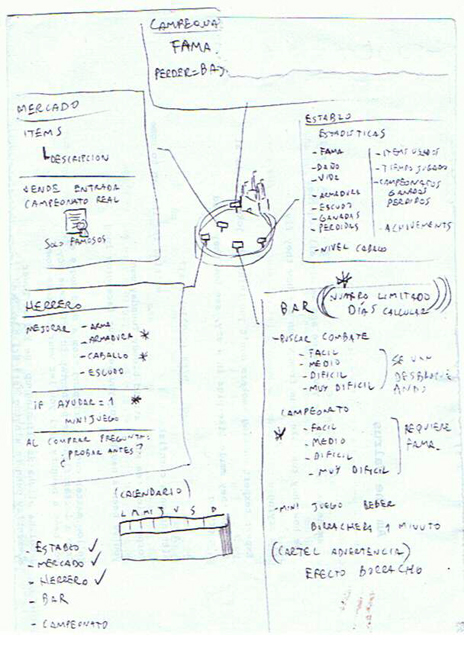 CAMPEONA
FAMA
PERDER=BAJ
MERCADO
ITEMS
DESCRIPCION
VENDE ENTRADA
CAMPEONATO REAL
SOLO FAMOSOS
ESTABLO
ESTADISTICAS
- FAMA
- DAÑO
- VIDA
- ARMADURA
- ESCUDO
- GANADAS
- PERDIDAS
- NIVEL CABALLO
- ITEMS USADOS
- TIEMPO JUGADO
- CAMPEONATOS
GANADOS
PERDIDOS
- ACHIVEMENTS
HERRERO
MEJORAR - ARMA
- ARMADURA *
- CABALLO *
- ESCUDO
IF AYUDAR = 1 *
MINIJUEGO
AL COMPRAR PREGUNTA:
¿PROBAR ANTES?
BAR ((NUMERO LIMITADO
DÍAS CALCULAR))
- BUSCAR COMBATE
- FACIL
- MEDIO
- DIFICIL
- MUY DIFICIL
SE VAN
CAMPEONATO
* - FACIL
- MEDIO
- DIFICIL
- MUY DIFICIL
REQUIERE
FAMA
- MINI JUEGO BEBER
BORRACHERA 1 MINUTO
(CARTEL ADVERTENCIA)
EFECTO BORRACHO
(CALENDARIO)
L M MI J V S D
- ESTABLO ✓
- MERCADO ✓
- HERRERO ✓
- BAR
- CAMPEONATO